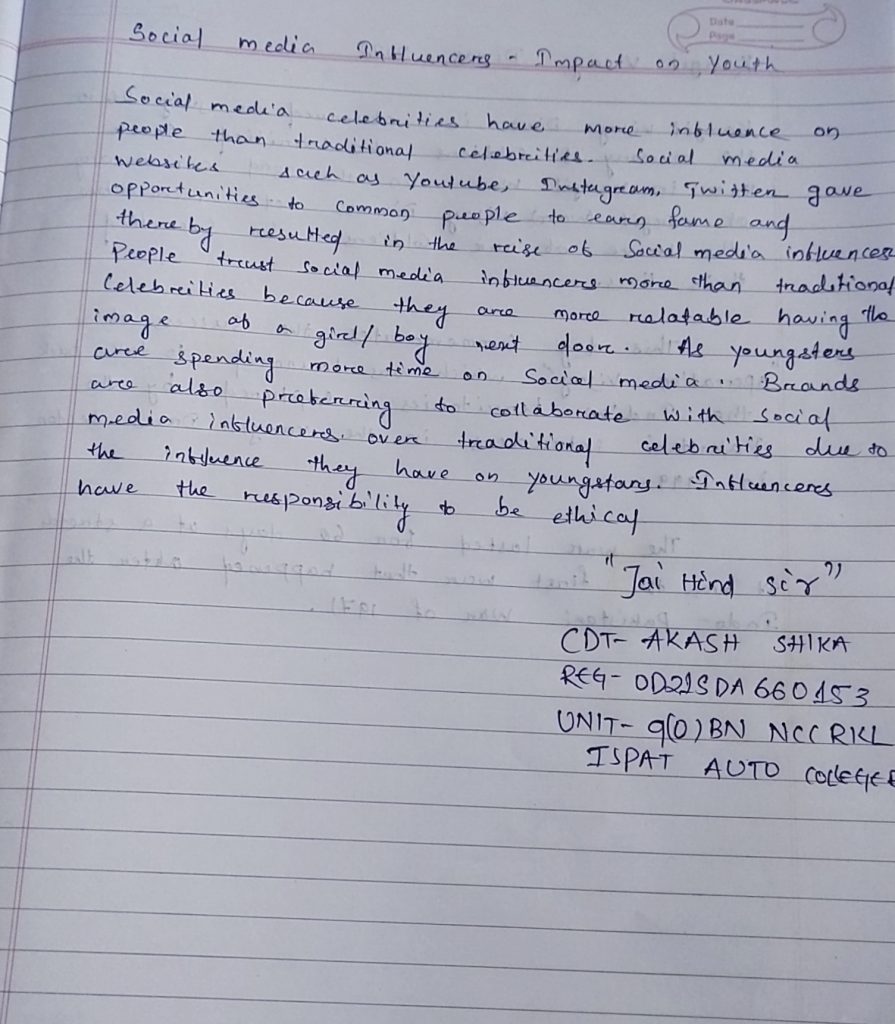 Date
Page
Social media Influencers - Impact on Youth
Social media celebrities have more influence on
people than traditional celebrities. Social media
websites such as Youtube, Instagram, Twitter gave
opportunities to common people to earn fame and
there by resulted in the raise of Social media influencer
People trust social media influencers more than traditional
Celebrities because they are more relatable having the
image of a girl/boy next door. As youngsters
are spending more time on Social media. Brands
are also preferring to collaborate with social
media influencers over traditional celebrities due to
the influence they have on youngstars. Influencers
have the responsibility to be ethical
"Jai Hind sir"
CDT- AKASH SHIKA
REG- OD21SDA660153
UNIT- 9(O)BN NCC RKL
ISPAT AUTO COLLEGE